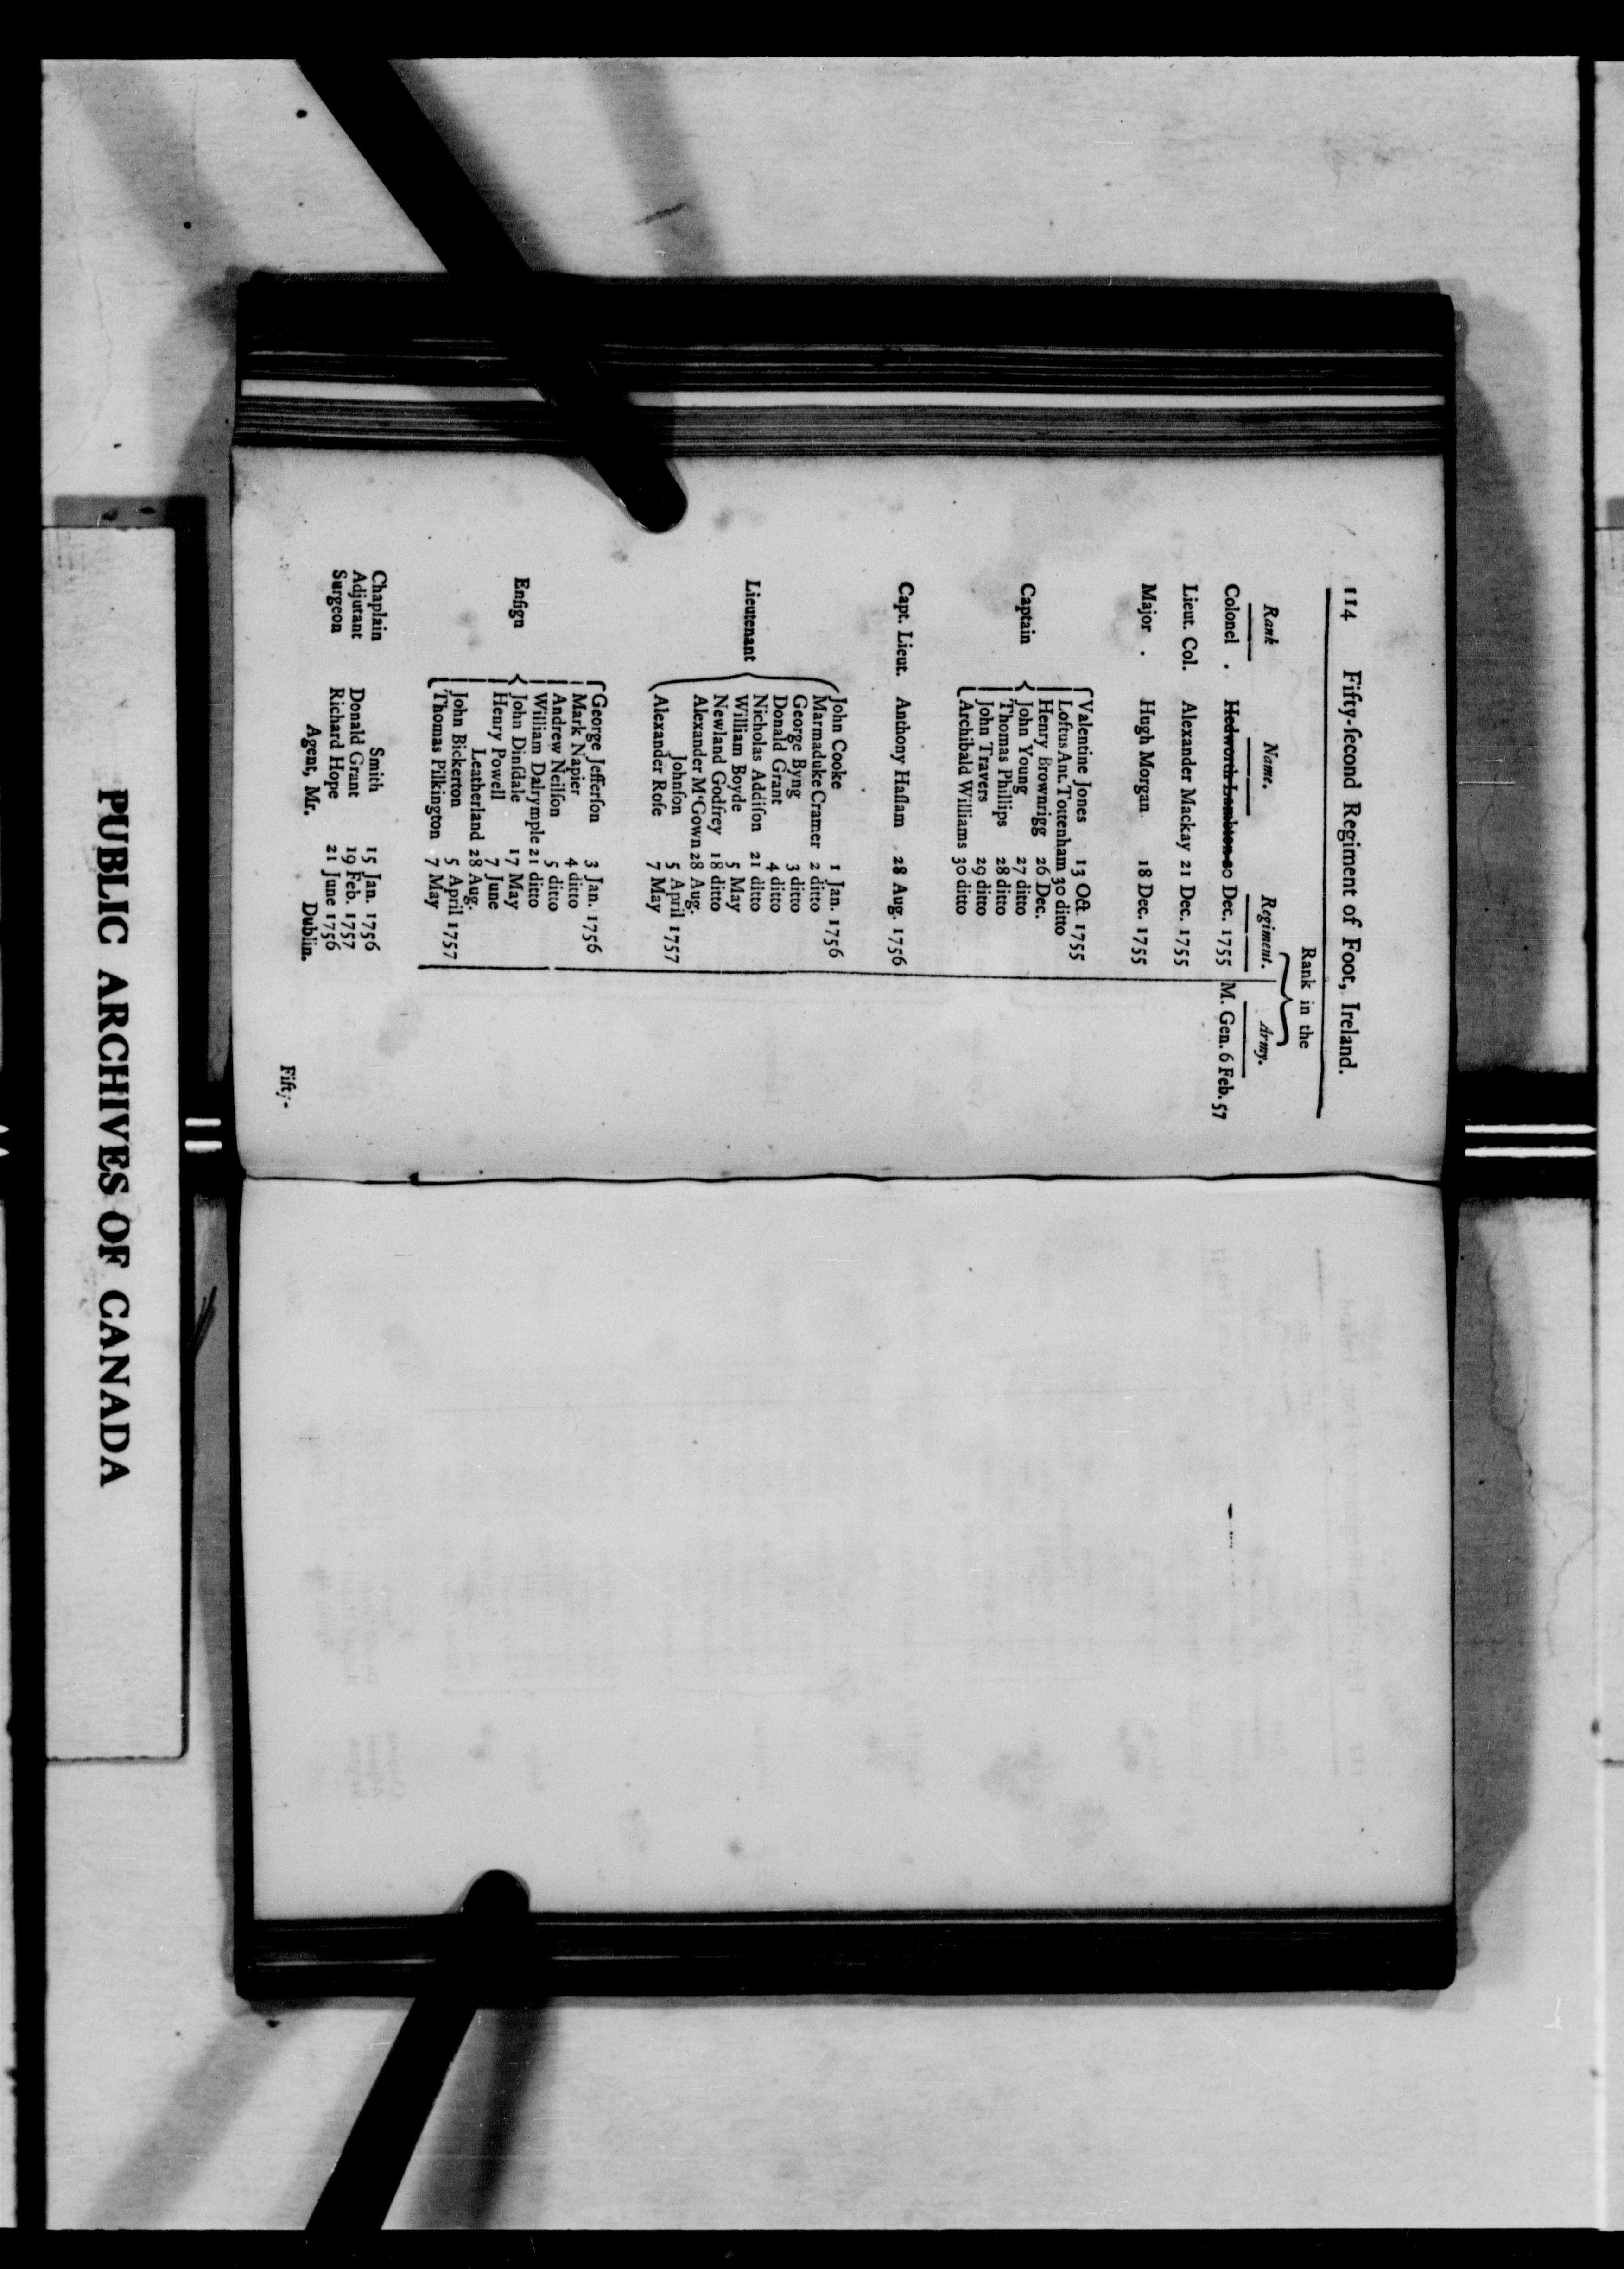 114 Fifty-ſecond Regiment of Foot, Ireland.
Rank in the
Rank Name. Regiment. Army.
Colonel . Hedworth Lambton 20 Dec. 1755 M. Gen. 6 Feb. 57
Lieut. Col. Alexander Mackay 21 Dec. 1755
Major . Hugh Morgan 18 Dec. 1755
Valentine Jones 13 Oct. 1755
Loftus Ant. Tottenham 30 ditto
Henry Brownrigg 26 Dec.
Captain John Young 27 ditto
Thomas Phillips 28 ditto
John Travers 29 ditto
Archibald Williams 30 ditto
Capt. Lieut. Anthony Haſlam 28 Aug. 1756
John Cooke 1 Jan. 1756
Marmaduke Cramer 2 ditto
George Byng 3 ditto
Donald Grant 4 ditto
Lieutenant Nicholas Addiſon 21 ditto
William Boyde 5 May
Newland Godfrey 18 ditto
Alexander M'Gown 28 Aug.
Johnſon 5 April 1757
Alexander Roſe 7 May
George Jefferſon 3 Jan. 1756
Mark Napier 4 ditto
Andrew Neilſon 5 ditto
William Dalrymple 21 ditto
Enſign John Dinſdale 17 May
Henry Powell 7 June
Leatherland 28 Aug.
John Bickerton 5 April 1757
Thomas Pilkington 7 May
Chaplain Smith 15 Jan. 1756
Adjutant Donald Grant 19 Feb. 1757
Surgeon Richard Hope 21 June 1756
Agent, Mr. Dublin.
Fifty-
PUBLIC ARCHIVES OF CANADA